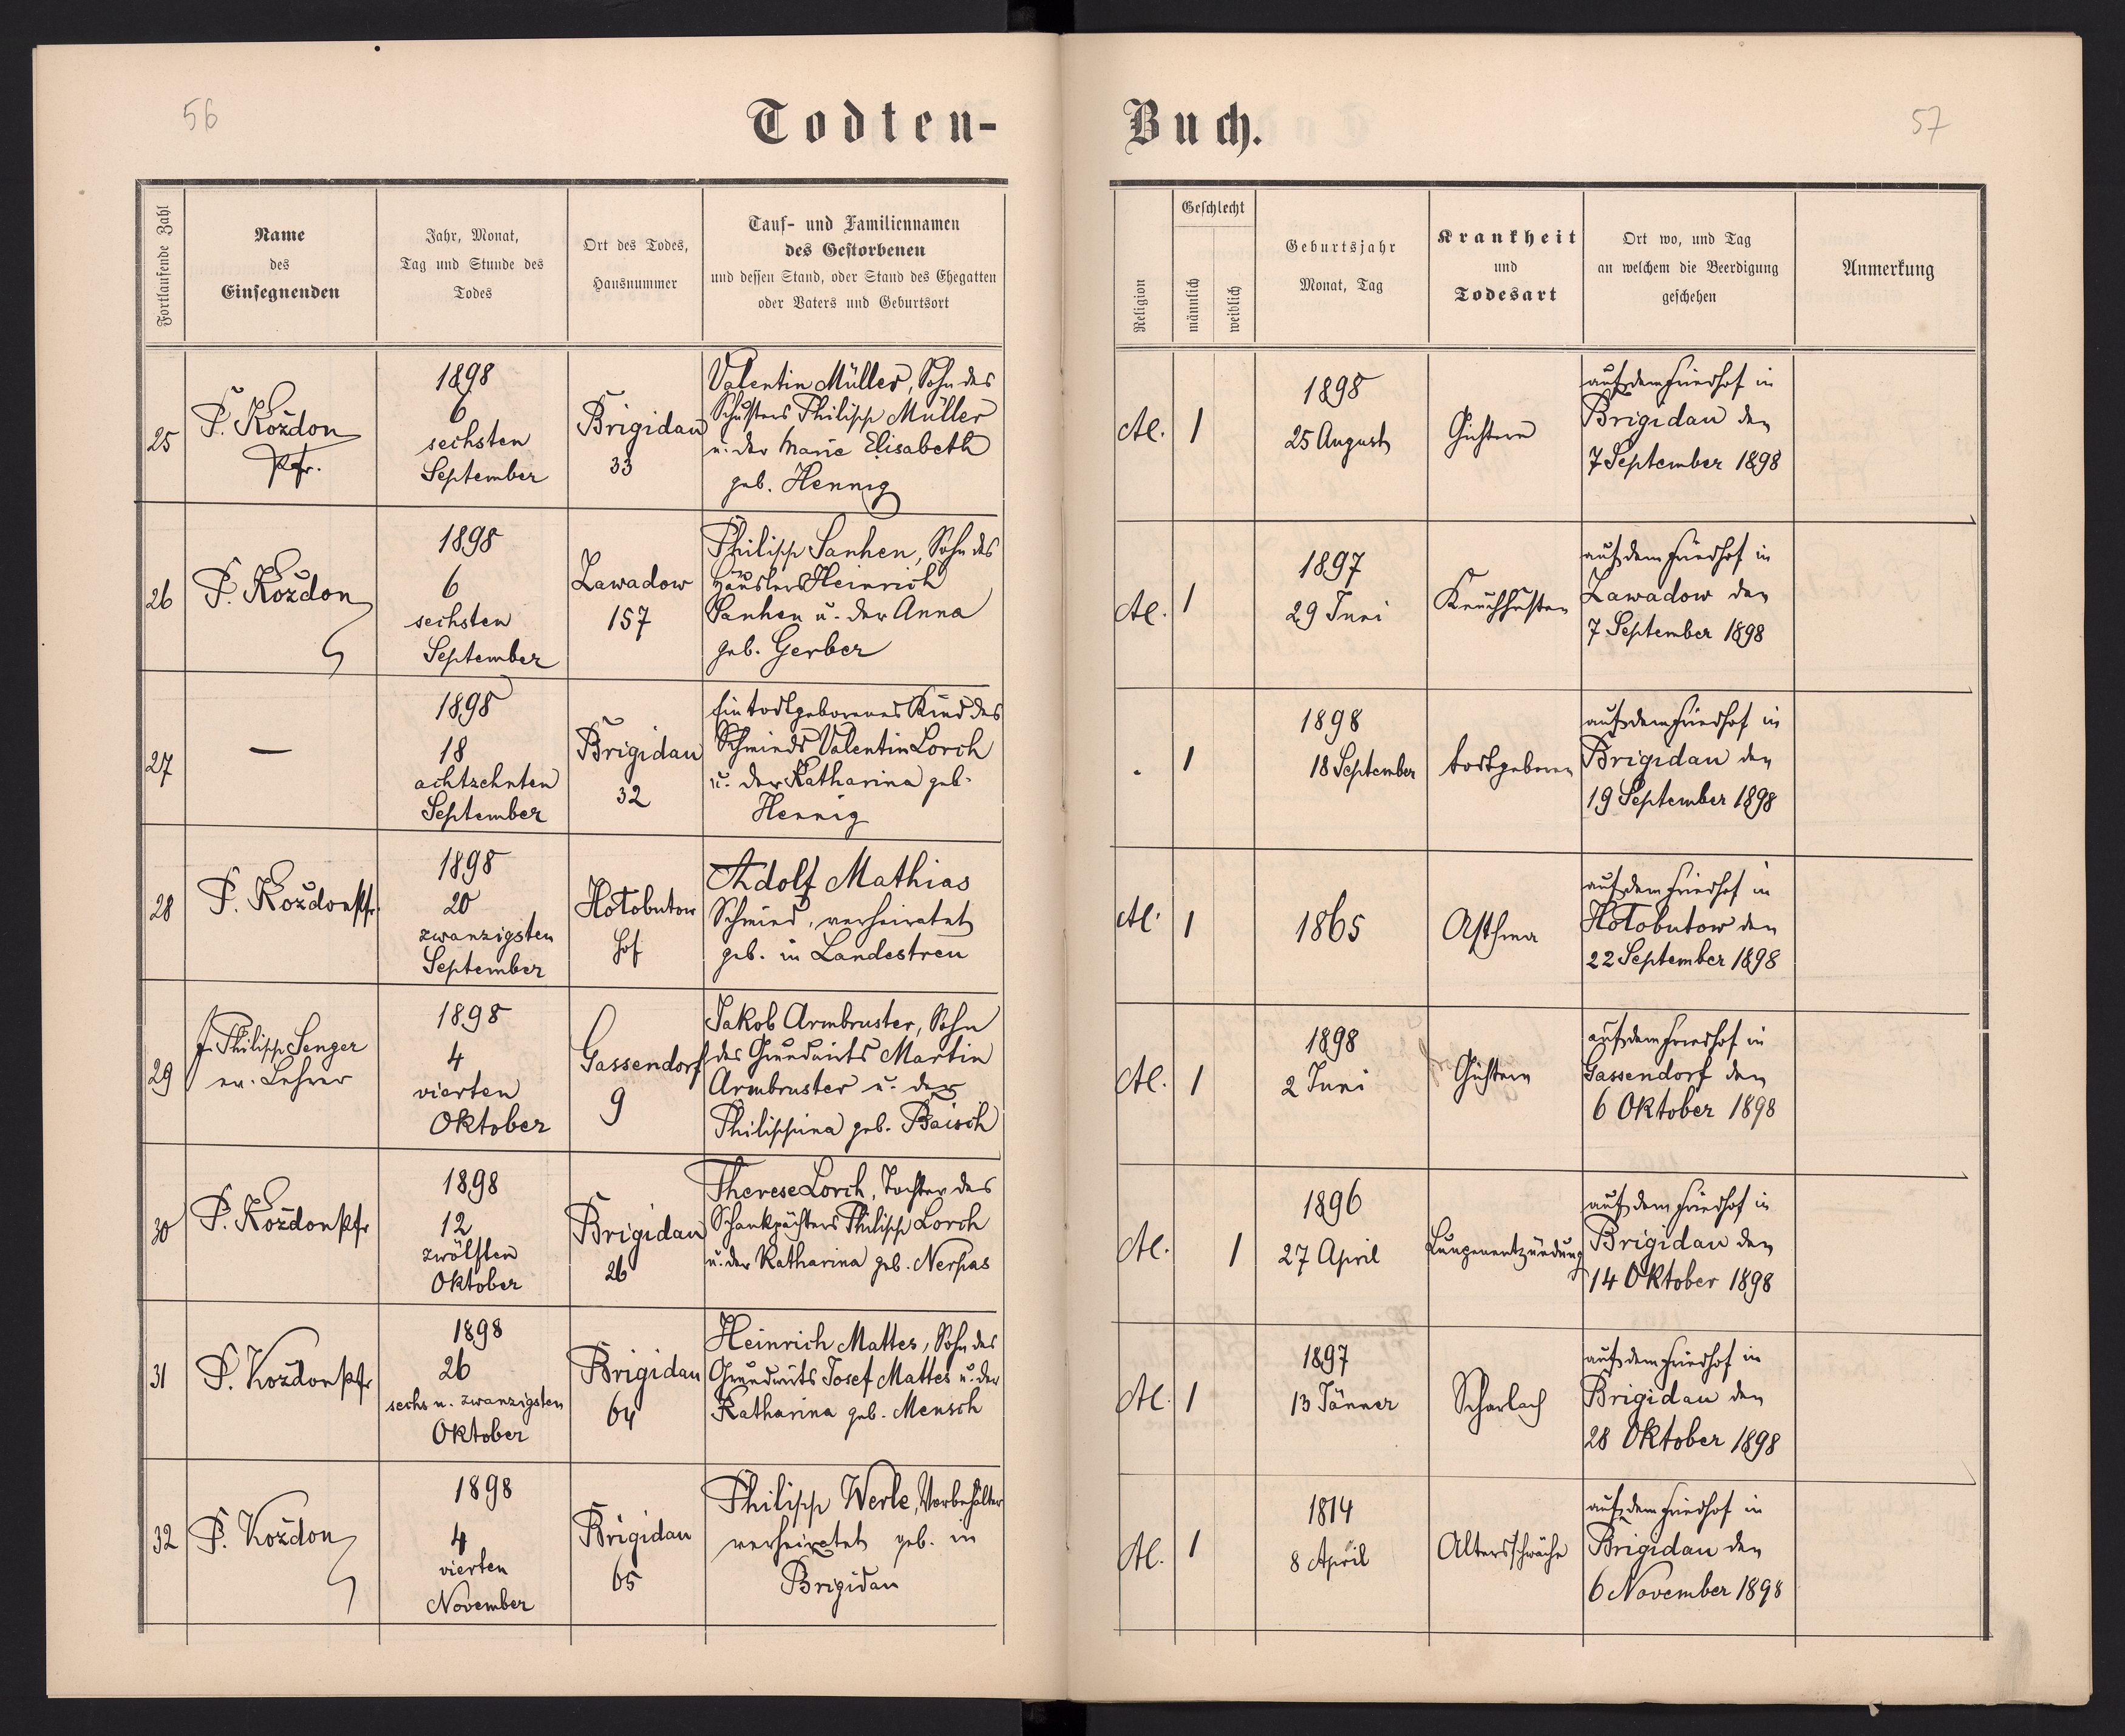 56
Todten-
Fortlaufende Zahl
Name
des
Einsegnenden
Jahr, Monat,
Tag und Stunde des
Todes
Ort des Todes,
Hausnummer
Tauf- und Familiennamen
des Gestorbenen
und dessen Stand, oder Stand des Ehegatten
oder Vaters und Geburtsort
25
P. Koždon
Pfr.
1898
6
sechsten
September
Brigidau
33
Valentin Müller, Sohn des
Schusters Philipp Müller
u. der Marie Elisabeth
geb. Hennig
26
P. Koždon
1898
6
sechsten
September
Zawadow
157
Philipp Sanhen, Sohn des
Häuslers Heinrich
Sanhen u. der Anna
geb. Gerber
27
—
1898
18
achtzehnten
September
Brigidau
32
Ein todtgeborenes Kind des
Schmieds Valentin Lorch
u. der Katharina geb.
Hennig
28
P. Koždon Pfr.
1898
20
zwanzigsten
September
Hołobutow
Hof
Adolf Mathias
Schmied, verheiratet
geb. in Landestreu
29
J. Philipp Senger
ev. Lehrer
1898
4
vierten
Oktober
Gassendorf
9
Jakob Armbruster, Sohn
des Grundwirts Martin
Armbruster u. der
Philippina geb. Baisch
30
P. Koždon Pfr
1898
12
zwölften
Oktober
Brigidau
26
Therese Lorch, Tochter des
Schankpächters Philipp Lorch
u. der Katharina geb. Nerpas
31
P. Koždon Pfr
1898
26
sechs u. zwanzigsten
Oktober
Brigidau
64
Heinrich Mattes, Sohn des
Grundwirts Josef Mattes u. der
Katharina geb. Mensch
32
P. Koždon
1898
4
vierten
November
Brigidau
65
Philipp Werle, Vorbehälter
verheiratet geb. in
Brigidau
Buch.
57
Religion
Geschlecht
männlich
weiblich
Geburtsjahr
Monat, Tag
Krankheit
und
Todesart
Ort wo, und Tag
an welchem die Beerdigung
geschehen
Anmerkung
1
1898
25 August
Gichtern
auf dem Friedhof in
Brigidau den
7 September 1898
1
1897
29 Juni
Keuchhusten
auf dem Friedhof in
Zawadow den
7 September 1898
1
1898
18 September
todtgeboren
auf dem Friedhof in
Brigidau den
19 September 1898
1
1865
Asthma
auf dem Friedhof in
Hołobutow den
22 September 1898
1
1898
2 Juni
Gichtern
auf dem Friedhof in
Gassendorf den
6 Oktober 1898
1
1896
27 April
Lungenentzündung
auf dem Friedhof in
Brigidau den
14 Oktober 1898
1
1897
13 Jänner
Scharlach
auf dem Friedhof in
Brigidau den
28 Oktober 1898
1
1814
8 April
Altersschwäche
auf dem Friedhof in
Brigidau den
6 November 1898